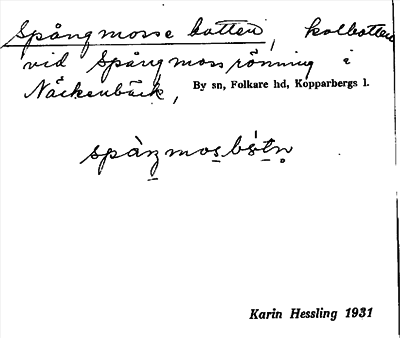 Spångmosse botten, kolbotten
vid Spångmossröning i
Näckenbäck, By sn, Folkare hd, Kopparbergs l.
Karin Hessling 1931